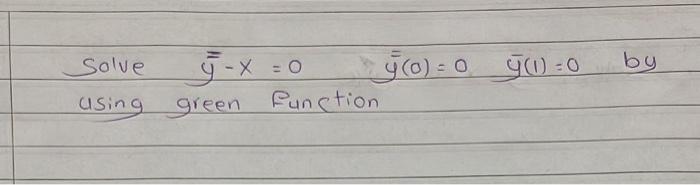 Solve ȳ̄ - x = 0 ȳ̄(0) = 0 ȳ(1) = 0 by
using green function